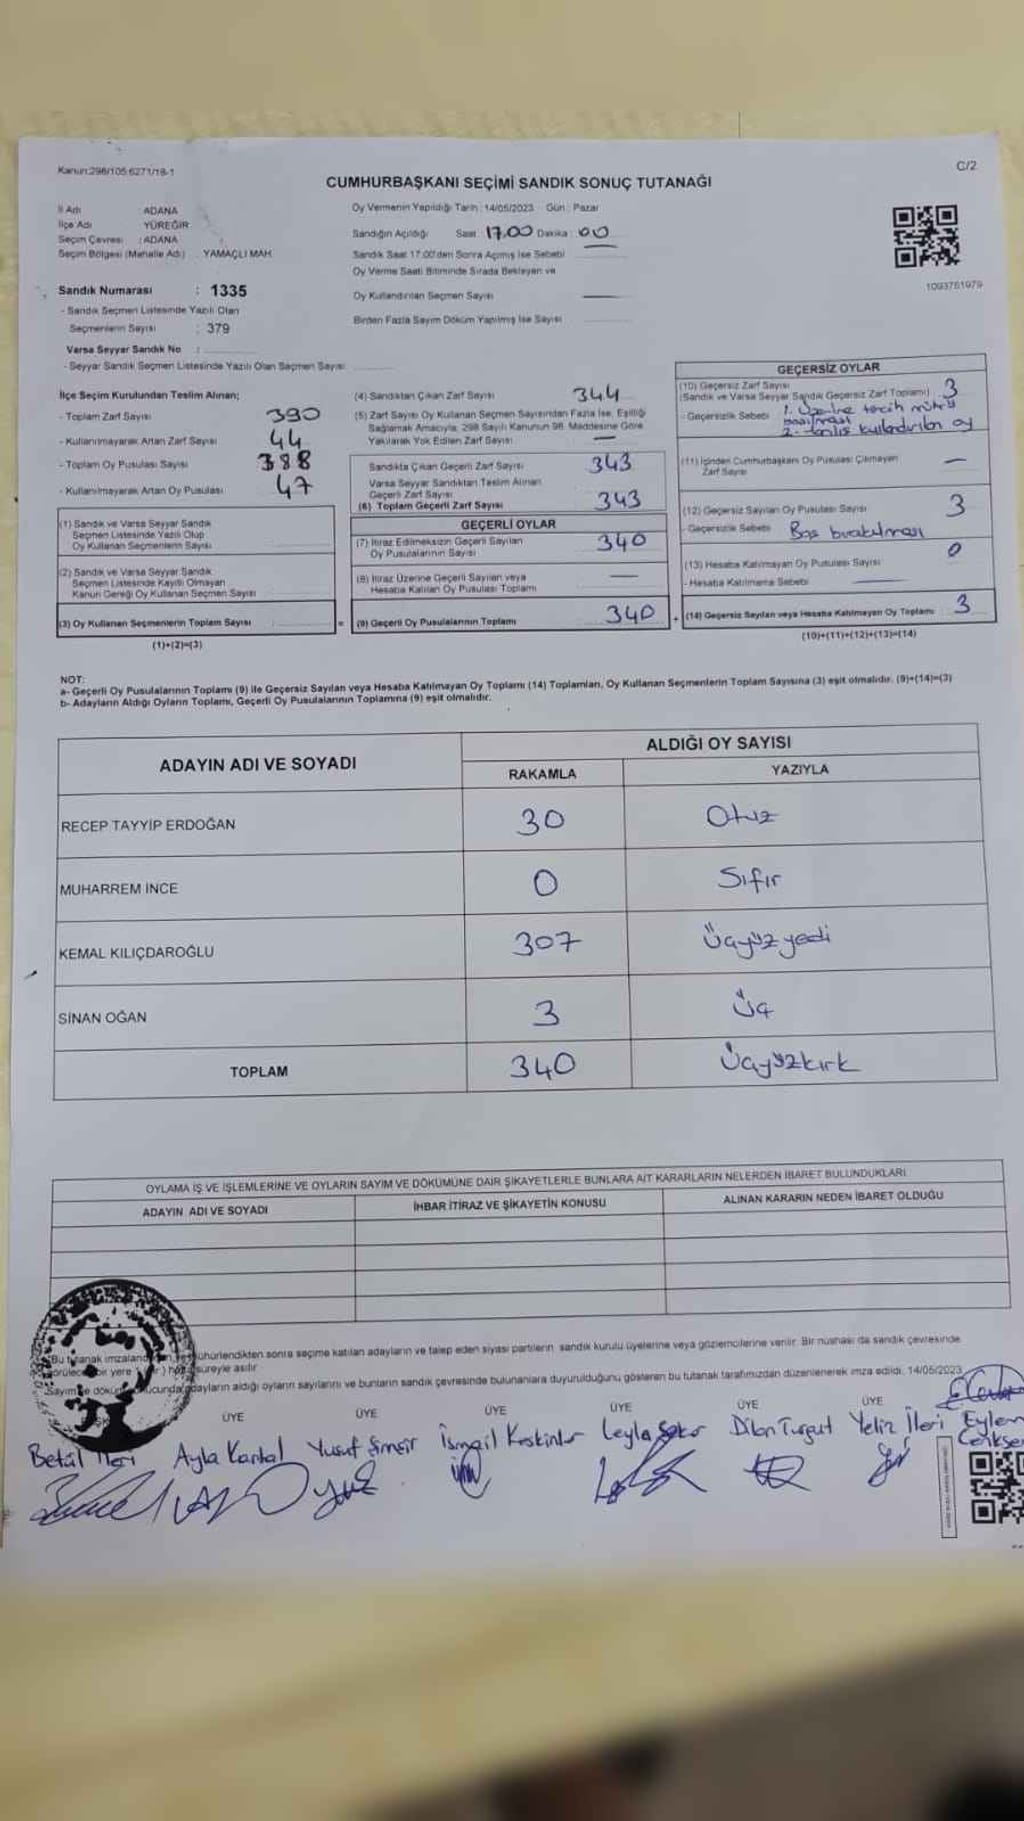 Kanun:298/105.6271/18-1
C/2
CUMHURBAŞKANI SEÇİMİ SANDIK SONUÇ TUTANAĞI
İl Adı : ADANA
İlçe Adı : YÜREĞİR
Seçim Çevresi : ADANA
Seçim Bölgesi (Mahalle Adı) : YAMAÇLI MAH.
Sandık Numarası : 1335
- Sandık Seçmen Listesinde Yazılı Olan
Seçmenlerin Sayısı : 379
Varsa Seyyar Sandık No :
- Seyyar Sandık Seçmen Listesinde Yazılı Olan Seçmen Sayısı:
Oy Vermenin Yapıldığı Tarih: 14/05/2023 Gün: Pazar
Sandığın Açıldığı Saat: 17.00 Dakika: 00
Sandık Saat 17:00'den Sonra Açılmış İse Sebebi
Oy Verme Saati Bitiminde Sırada Bekleyen ve
Oy Kullandırılan Seçmen Sayısı
Birden Fazla Sayım Döküm Yapılmış İse Sayısı
1093751979
İlçe Seçim Kurulundan Teslim Alınan;
- Toplam Zarf Sayısı 390
- Kullanılmayarak Artan Zarf Sayısı 44
- Toplam Oy Pusulası Sayısı 388
- Kullanılmayarak Artan Oy Pusulası 47
(1) Sandık ve Varsa Seyyar Sandık
Seçmen Listesinde Yazılı Olup
Oy Kullanan Seçmenlerin Sayısı
(2) Sandık ve Varsa Seyyar Sandık
Seçmen Listesinde Kayıtlı Olmayan
Kanun Gereği Oy Kullanan Seçmen Sayısı
(3) Oy Kullanan Seçmenlerin Toplam Sayısı
(1)+(2)=(3)
(4) Sandıktan Çıkan Zarf Sayısı 344
(5) Zarf Sayısı Oy Kullanan Seçmen Sayısından Fazla İse, Eşitliği
Sağlamak Amacıyla, 298 Sayılı Kanunun 98. Maddesine Göre
Yakılarak Yok Edilen Zarf Sayısı —
Sandıkta Çıkan Geçerli Zarf Sayısı 343
Varsa Seyyar Sandıktan Teslim Alınan
Geçerli Zarf Sayısı
(6) Toplam Geçerli Zarf Sayısı 343
GEÇERLİ OYLAR
(7) İtiraz Edilmeksizin Geçerli Sayılan
Oy Pusulalarının Sayısı 340
(8) İtiraz Üzerine Geçerli Sayılan veya
Hesaba Katılan Oy Pusulası Toplamı —
= (9) Geçerli Oy Pusulalarının Toplamı 340
GEÇERSİZ OYLAR
(10) Geçersiz Zarf Sayısı
(Sandık ve Varsa Seyyar Sandık Geçersiz Zarf Toplamı) 3
- Geçersizlik Sebebi 1. Üzerine tercih mührü
basılması
2. kullandırılan oy
(11) İçinden Cumhurbaşkanı Oy Pusulası Çıkmayan
Zarf Sayısı —
(12) Geçersiz Sayılan Oy Pusulası Sayısı 3
- Geçersizlik Sebebi Boş bırakılması
(13) Hesaba Katılmayan Oy Pusulası Sayısı 0
- Hesaba Katılmama Sebebi —
+ (14) Geçersiz Sayılan veya Hesaba Katılmayan Oy Toplamı 3
(10)+(11)+(12)+(13)=(14)
NOT:
a- Geçerli Oy Pusulalarının Toplamı (9) ile Geçersiz Sayılan veya Hesaba Katılmayan Oy Toplamı (14) Toplamları, Oy Kullanan Seçmenlerin Toplam Sayısına (3) eşit olmalıdır. (9)+(14)=(3)
b- Adayların Aldığı Oyların Toplamı, Geçerli Oy Pusulalarının Toplamına (9) eşit olmalıdır.
ADAYIN ADI VE SOYADI
ALDIĞI OY SAYISI
RAKAMLA YAZIYLA
RECEP TAYYİP ERDOĞAN 30 Otuz
MUHARREM İNCE 0 Sıfır
KEMAL KILIÇDAROĞLU 307 Üçyüzyedi
SİNAN OĞAN 3 Üç
TOPLAM 340 Üçyüzkırk
OYLAMA İŞ VE İŞLEMLERİNE VE OYLARIN SAYIM VE DÖKÜMÜNE DAİR ŞİKAYETLERLE BUNLARA AİT KARARLARIN NELERDEN İBARET BULUNDUKLARI
ADAYIN ADI VE SOYADI İHBAR İTİRAZ VE ŞİKAYETİN KONUSU ALINAN KARARIN NEDEN İBARET OLDUĞU
Bu tutanak mühürlendikten sonra seçime katılan adayların ve talep eden siyasi partilerin sandık kurulu üyelerine veya gözlemcilerine verilir. Bir nüshası da sandık çevresinde
bir yere süreyle asılır
Sayım adayların aldığı oyların sayılarını ve bunların sandık çevresinde bulunanlara duyurulduğunu gösteren bu tutanak tarafımızdan düzenlenerek imza edildi. 14/05/2023
ÜYE ÜYE ÜYE ÜYE ÜYE ÜYE
Betül İleri Ayla Kartal Yusuf Şimşir İsmail Keskinler Leyla Şeker Dilan Turgut Yeliz İleri Eylem